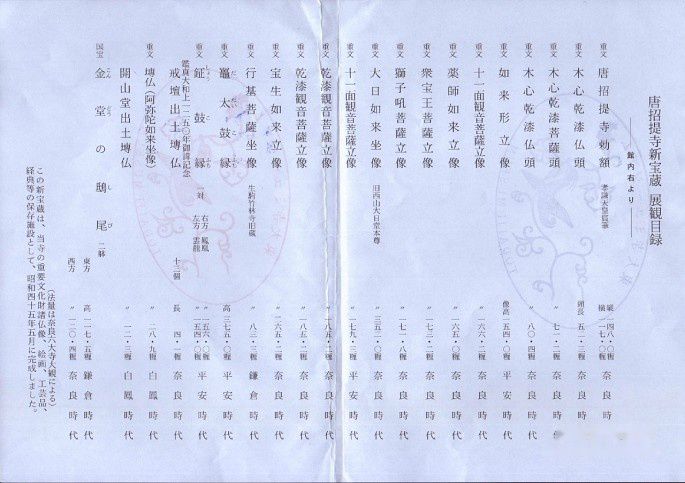 唐招提寺新宝蔵 展観目録
―― 館内右より ――
重文 唐招提寺勅額 孝謙天皇宸筆 縦 一四八・〇糎 横 一一七・〇糎 奈良時代
重文 木心乾漆仏頭 頭長 五一・三糎 奈良時代
重文 木心乾漆菩薩頭 〃 七一・二糎 奈良時代
重文 木心乾漆仏頭 〃 八〇・四糎 奈良時代
重文 如来形立像 像高 一五四・〇糎 平安時代
重文 十一面観音菩薩立像 〃 一六六・二糎 奈良時代
重文 薬師如来立像 〃 一六五・〇糎 奈良時代
重文 衆宝王菩薩立像 〃 一七三・二糎 奈良時代
重文 獅子吼菩薩立像 〃 一七一・八糎 奈良時代
重文 大日如来坐像 旧西山大日堂本尊 〃 三五二・〇糎 平安時代
重文 十一面観音菩薩立像 〃 一七九・三糎 平安時代
重文 乾漆観音菩薩立像 〃 一八五・七糎 奈良時代
重文 乾漆観音菩薩立像 〃 一八五・七糎 奈良時代
重文 宝生如来立像 〃 一六五・三糎 奈良時代
重文 行基菩薩坐像 生駒竹林寺旧蔵 〃 八三・三糎 鎌倉時代
重文 鼉太鼓縁 高 三七五・〇糎 平安時代
重文 鉦鼓縁 一対 右方 鳳凰 左方 雲龍 〃 一五六・〇糎 〃 一五四・〇糎 平安時代
鑑真大和上一二五〇年御諱記念
戒壇出土塼仏 十三個 長 四・一糎 奈良時代
重文 塼仏(阿弥陀如来坐像) 〃 二八・九糎 白鳳時代
開山堂出土塼仏 〃 一二・三糎 白鳳時代
国宝 金堂の鴟尾 二躰 東方 高 一一七・五糎 鎌倉時代
西方 〃 一二〇・四糎 奈良時代
(法量は奈良六大寺大観による)
この新宝蔵は、当寺の重要文化財諸仏像、絵画、工芸品、
経典等の保存施設として、昭和四十五年五月に完成しました。